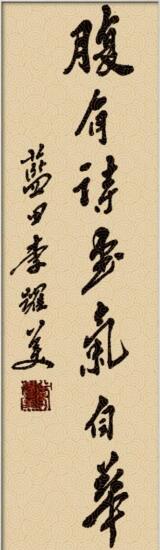 腹有詩書氣自華
藍田李躍美